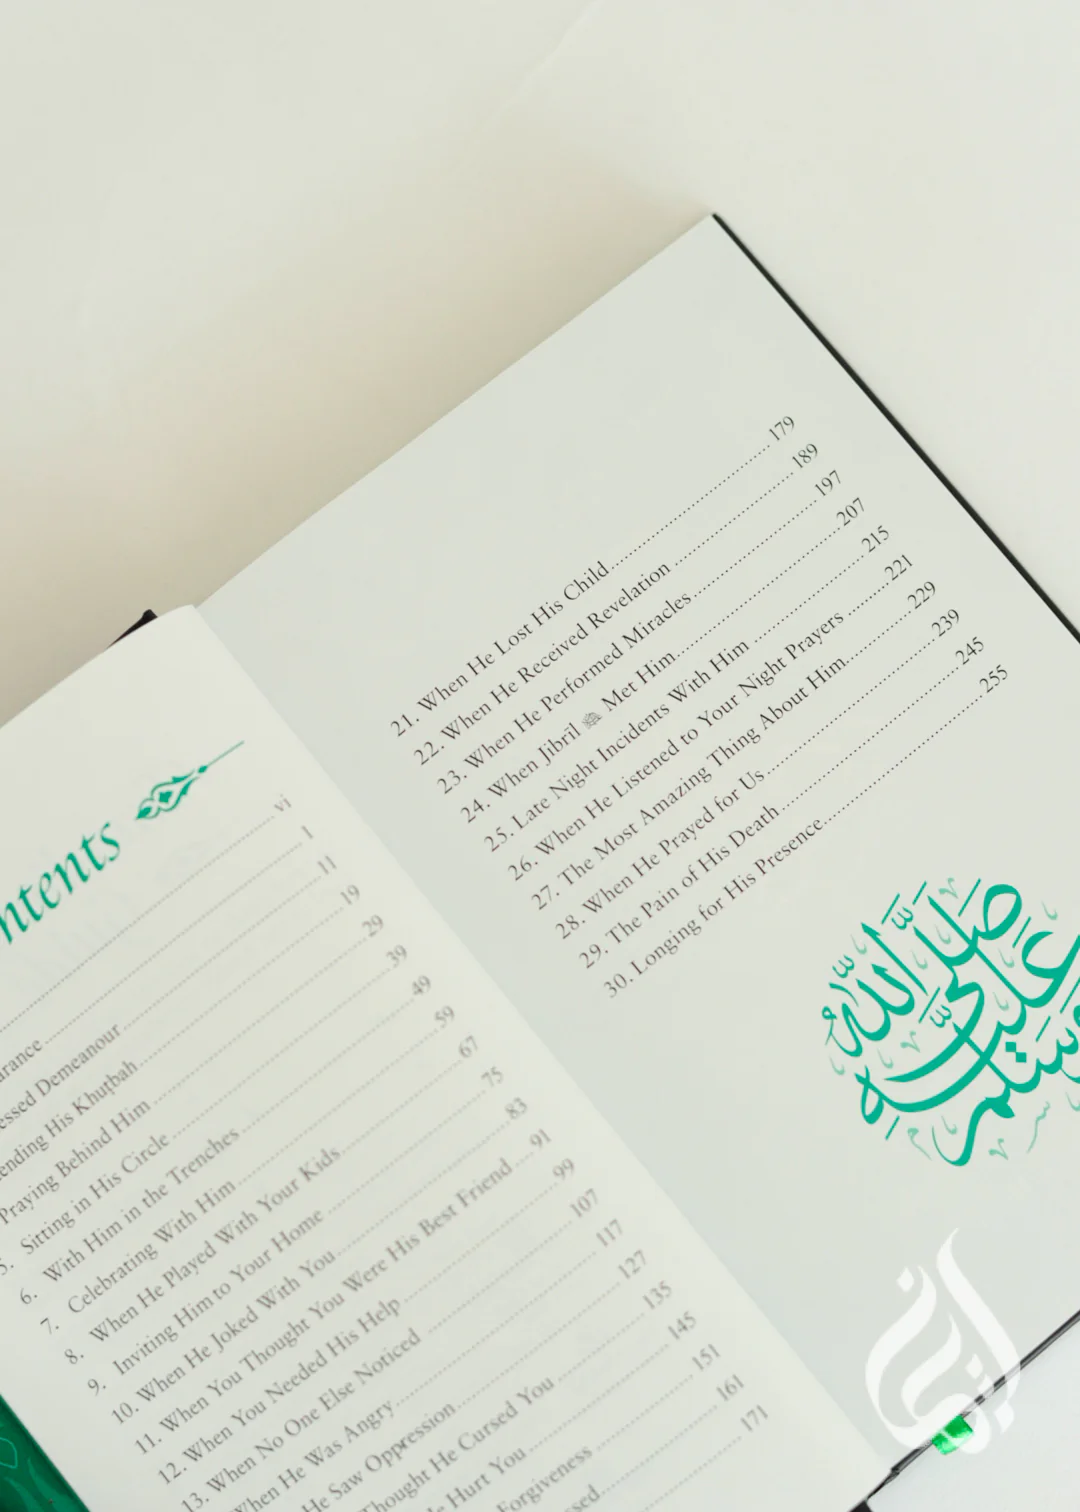 ntents
vi
arance 1
essed Demeanour 11
ending His Khuṭbah 19
Praying Behind Him 29
5. Sitting in His Circle 39
6. With Him in the Trenches 49
7. Celebrating With Him 59
8. When He Played With Your Kids 67
9. Inviting Him to Your Home 75
10. When He Joked With You 83
11. When You Thought You Were His Best Friend 91
12. When You Needed His Help 99
13. When No One Else Noticed 107
When He Was Angry 117
He Saw Oppression 127
Thought He Cursed You 135
He Hurt You 145
Forgiveness 151
161
171
21. When He Lost His Child 179
22. When He Received Revelation 189
23. When He Performed Miracles 197
24. When Jibrīl Met Him 207
25. Late Night Incidents With Him 215
26. When He Listened to Your Night Prayers 221
27. The Most Amazing Thing About Him 229
28. When He Prayed for Us 239
29. The Pain of His Death 245
30. Longing for His Presence 255
صلى الله عليه وسلم